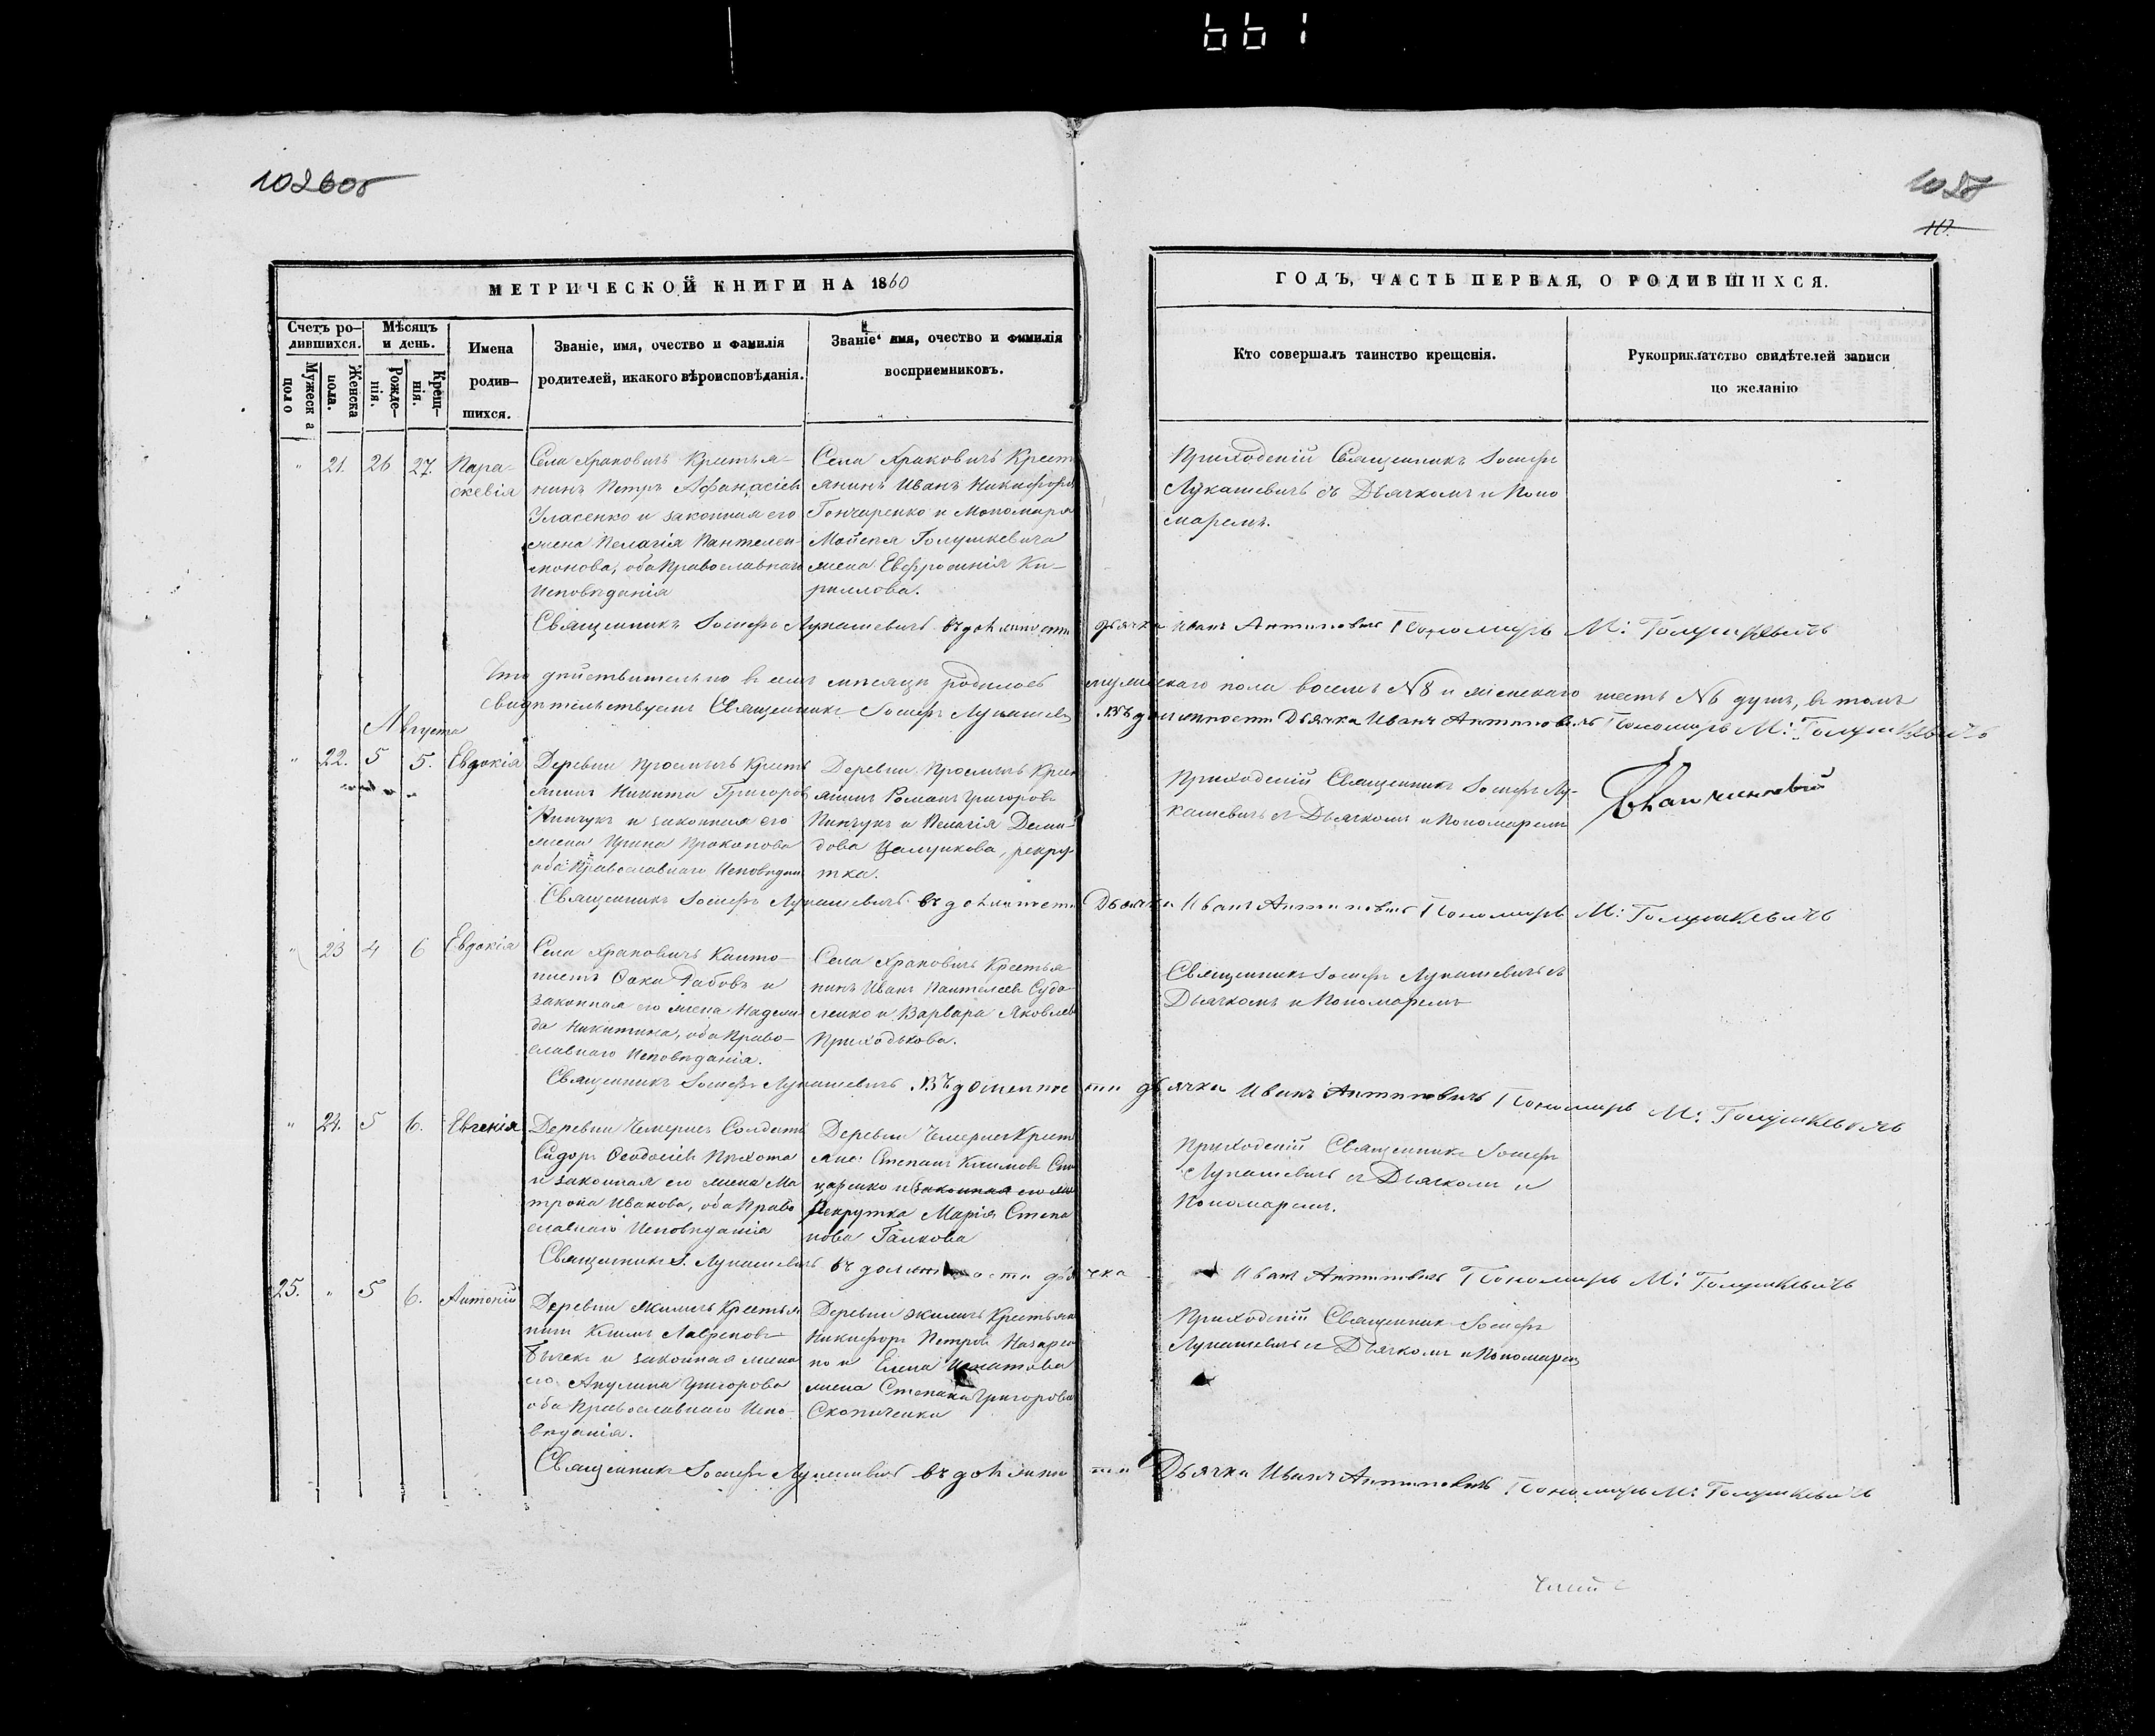 1661
102 об
103
10.
МЕТРИЧЕСКОЙ КНИГИ НА 1860
ГОДЪ, ЧАСТЬ ПЕРВАЯ, О РОДИВШИХСЯ.
Счетъ ро-
дившихся.
Мужеска
пола
Женска
пола.
Мѣсяцъ
и день.
Рожде-
нія.
Крещ-
нія.
Имена
родив-
шихся.
Званіе, имя, очество и фамилія
родителей, икакого вѣроисповѣданія.
Званіе имя, очество и фамилія
восприемниковъ.
Кто совершалъ таинство крещенія.
Рукоприклатство свидѣтелей записи
по желанію
" 21. 26 27.
Пара-
скевія
Села Храковичъ Крестья-
нинъ Петръ Афанасіевъ
Уласенко и законная его
жена Пелагія Пантелеи-
монова, оба Православнаго
Исповѣданія
Села Храковичъ Крест
янинъ Иванъ Никифоровъ
Гончаренко и Пономаря
Мойсея Голушкевича
жена Евфросинія Ки-
риллова.
Приходскій Священникъ Іосифъ
Лукашевичъ съ Дьячкомъ и Поно
маремъ.
Священникъ Іосифъ Лукашевичъ въ должности дьячка Иванъ Антиповичъ Пономарь М: Голушкевичъ
Что дѣйствительно в семъ мѣсяцѣ родилось мужескаго пола восемь №8 и женскаго шесть №6 душъ, в томъ
свидѣтельствуемъ Священникъ Іосифъ Лукашевичъ Въ должности Дьячка Иванъ Антиповичъ Пономарь М: Голушкевичъ
Августа
" 22. 5 5. Евдокія
Деревни Просмычъ Кресть
янинъ Никита Григоровъ
Пинчукъ и законная его
жена Ирина Прокопова
оба Православнаго Исповѣдан
Деревни Просмычъ Крест
янинъ Романъ Григоровъ
Пинчукъ и Пелагія Деми-
дова Целуикова, рекру-
тка.
Приходскій Священникъ Іосифъ Лу-
кашевичъ съ Дьячкомъ и Пономаремъ
Священникъ Іосифъ Лукашевичъ въ должности Дьячка Иванъ Антиповичъ Пономарь М: Голушкевичъ
" 23 4 6 Евдокія
Села Храковичъ Канто-
нистъ Сака Рабовъ и
законная его жена Надеж-
да Никитина, оба Право-
славнаго Исповѣданія.
Села Храковичъ Крестья
нинъ Иванъ Пантелеевъ Суда-
ленко и Варвара Яковлев
Приходькова.
Священникъ Іосифъ Лукашевичъ съ
Дьячкомъ и Пономаремъ
Священникъ Іосифъ Лукашевичъ Въ должности дьячка Иванъ Антиповичъ Пономарь М: Голушкевичъ
" 24. 5 6. Евгенія
Деревни Чемерисъ Солдатъ
Сидоръ Феодосіевъ Пѣхота
и законная его жена Ма
трона Иванова, оба Право
славнаго Исповѣданія
Деревни Чемерисъ Крест
янс: Степанъ Климовъ
царенко и законная его же
Рекрутка Марія Степа
нова Галкова
Приходскій Священникъ Іосифъ
Лукашевичъ съ Дьячкомъ и
Пономаремъ.
Священникъ І. Лукашевичъ въ должности дьячка Иванъ Антиповичъ Пономарь М: Голушкевичъ
25. " 5 6. Антоній
Деревни Жиличъ Крестья
нинъ Климъ Лавреновъ
и законная жена
его Акулина Григорова
оба Православнаго Испо-
вѣданія.
Деревни Жиличъ Крестьян
Никифоръ Петровъ Назарен
ко и Елена Игнатова
жена Степана Григорова
Скопиченка
Приходскій Священникъ Іосифъ
Лукашевичъ съ Дьячкомъ и Пономарем
Священникъ Іосифъ Лукашевичъ въ должности Дьячка Иванъ Антиповичъ Пономарь М: Голушкевичъ